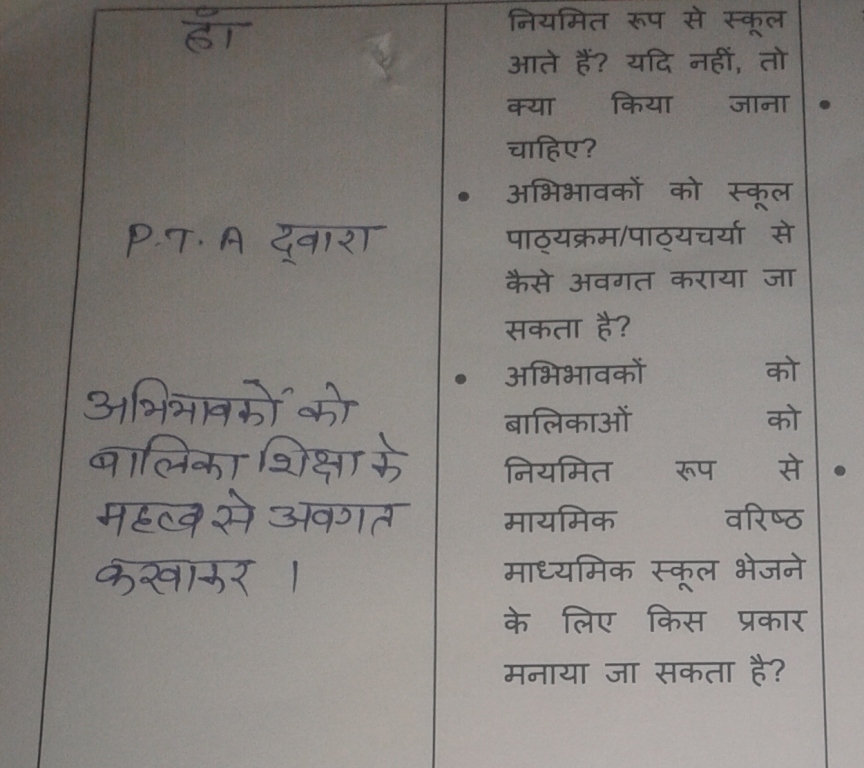 हाँ
P.T.A द्वारा
अभिभावकों को
बालिका शिक्षा के
महत्व से अवगत
करवाकर ।
नियमित रूप से स्कूल
आते हैं? यदि नहीं, तो
क्या किया जाना
चाहिए?
• अभिभावकों को स्कूल
पाठ्यक्रम/पाठ्यचर्या से
कैसे अवगत कराया जा
सकता है?
• अभिभावकों को
बालिकाओं को
नियमित रूप से
मायमिक वरिष्ठ
माध्यमिक स्कूल भेजने
के लिए किस प्रकार
मनाया जा सकता है?